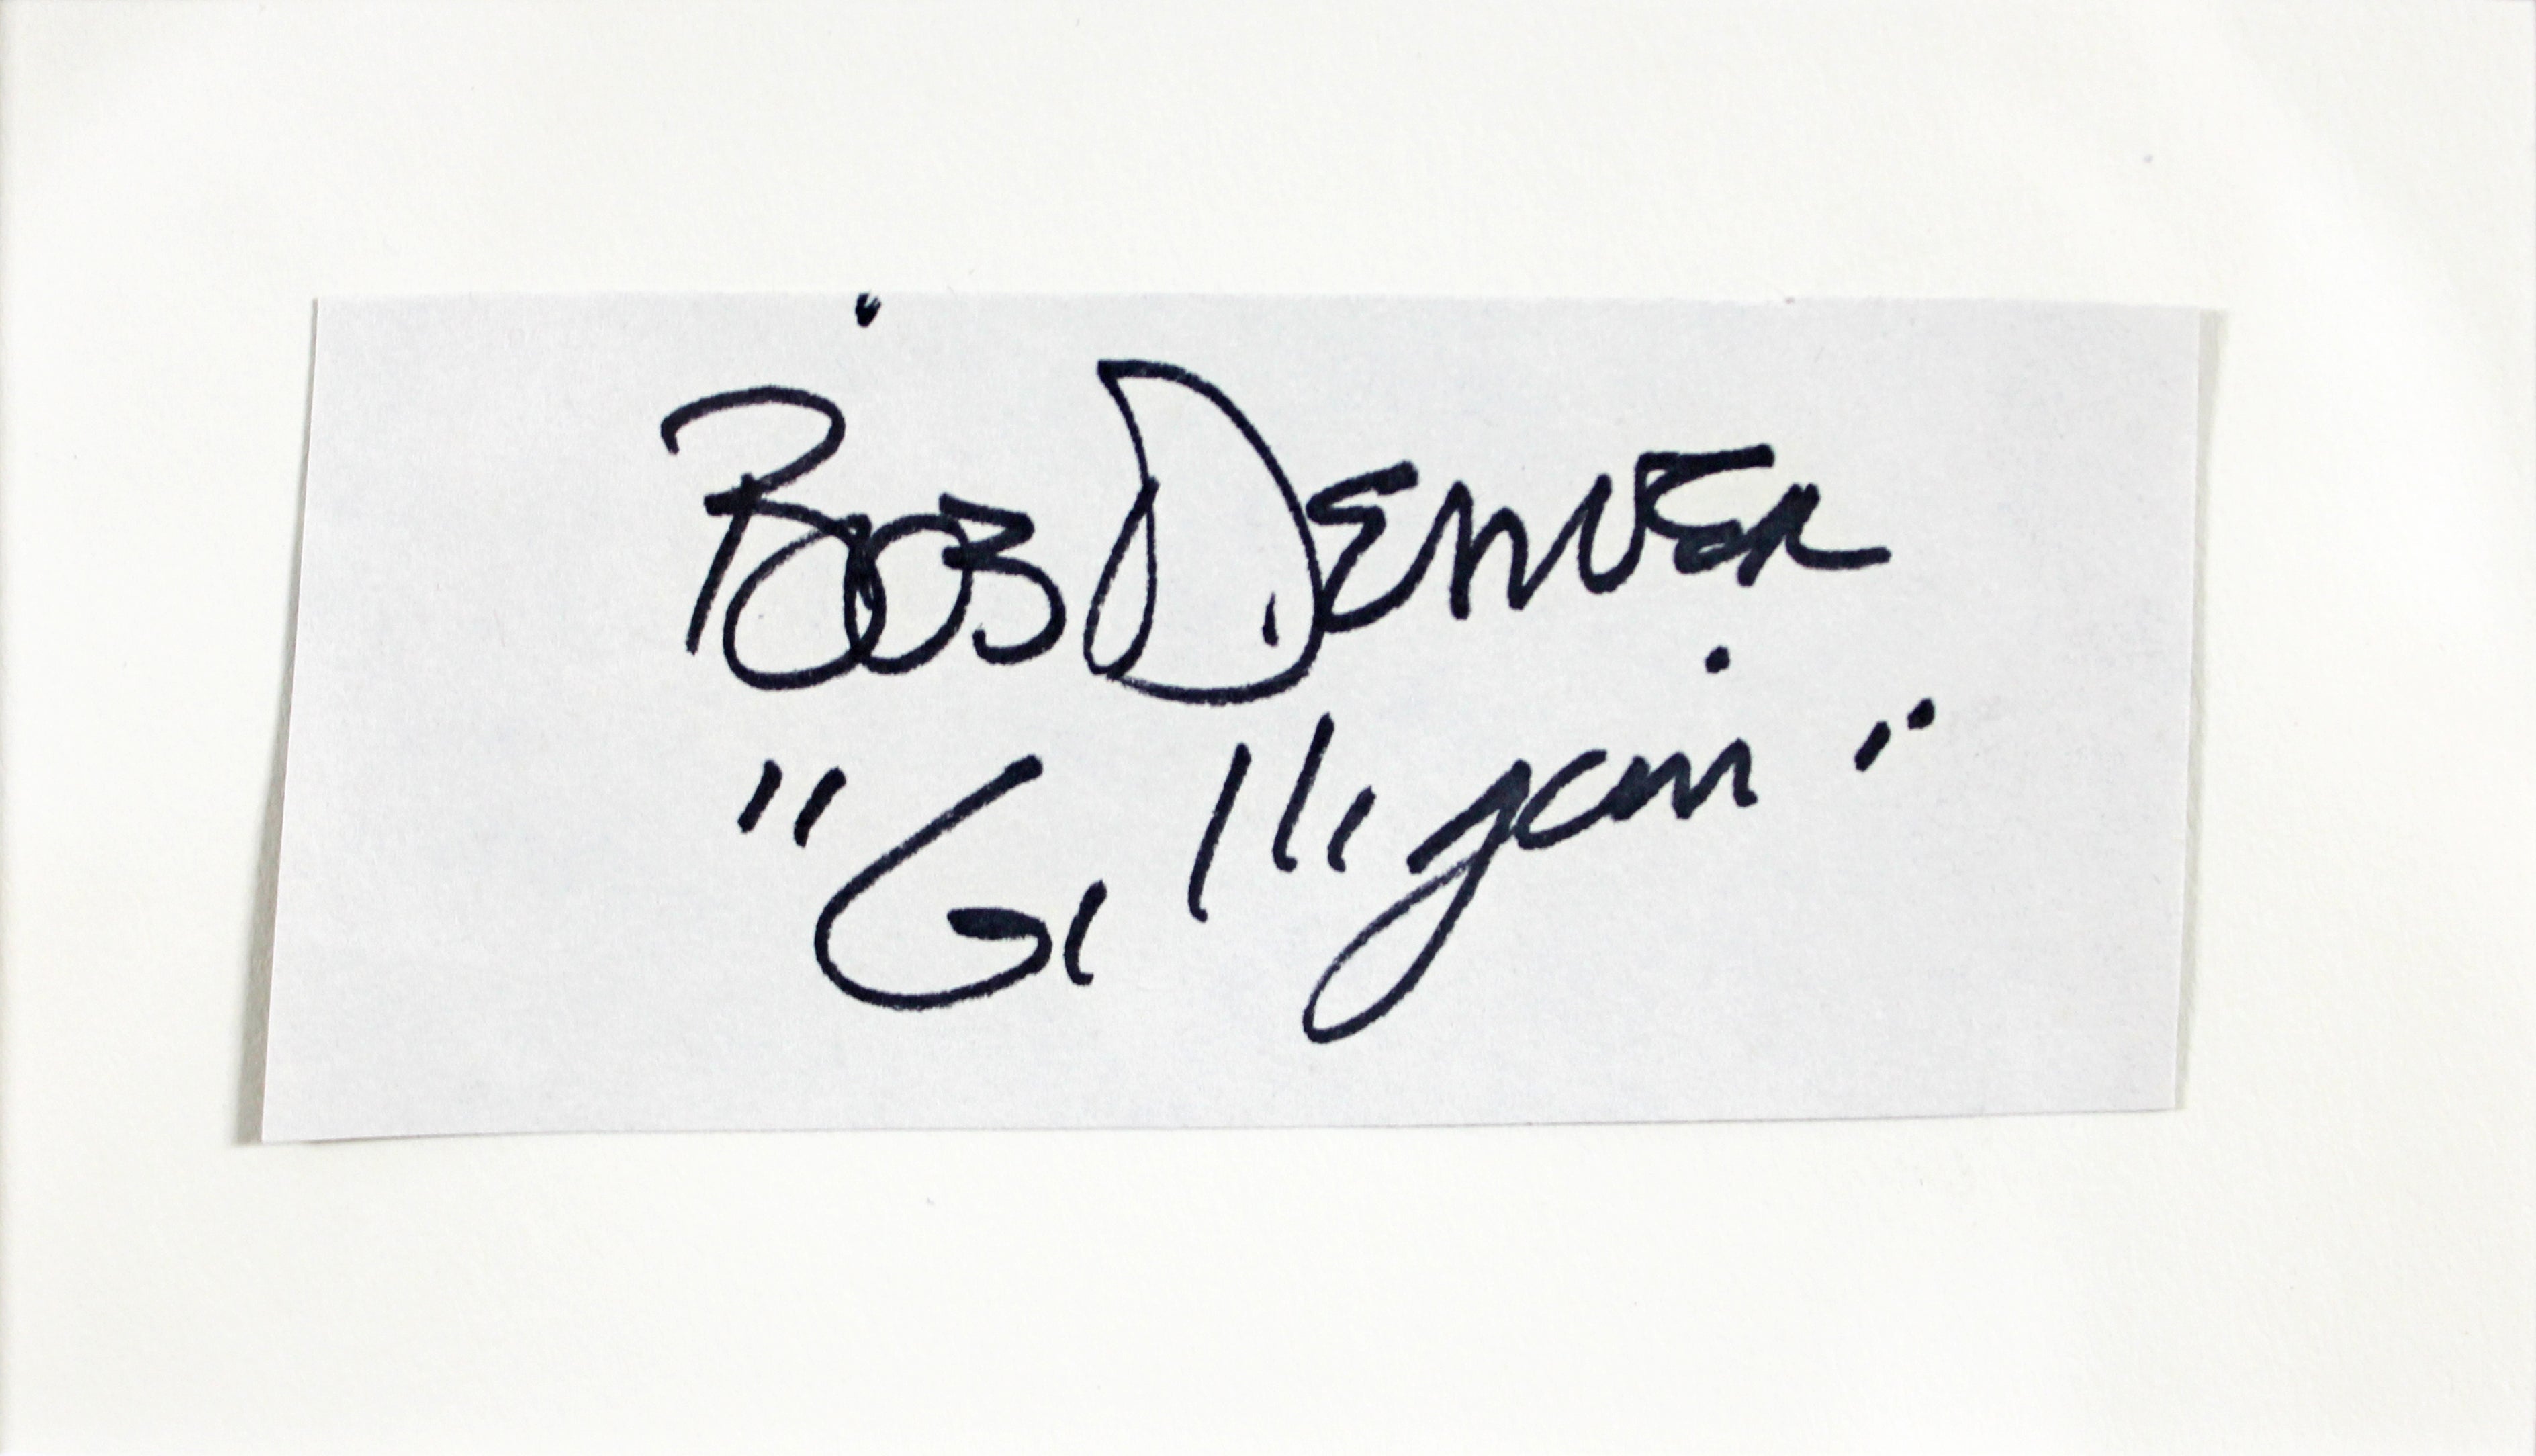 Bob Denver
"Gilligan"